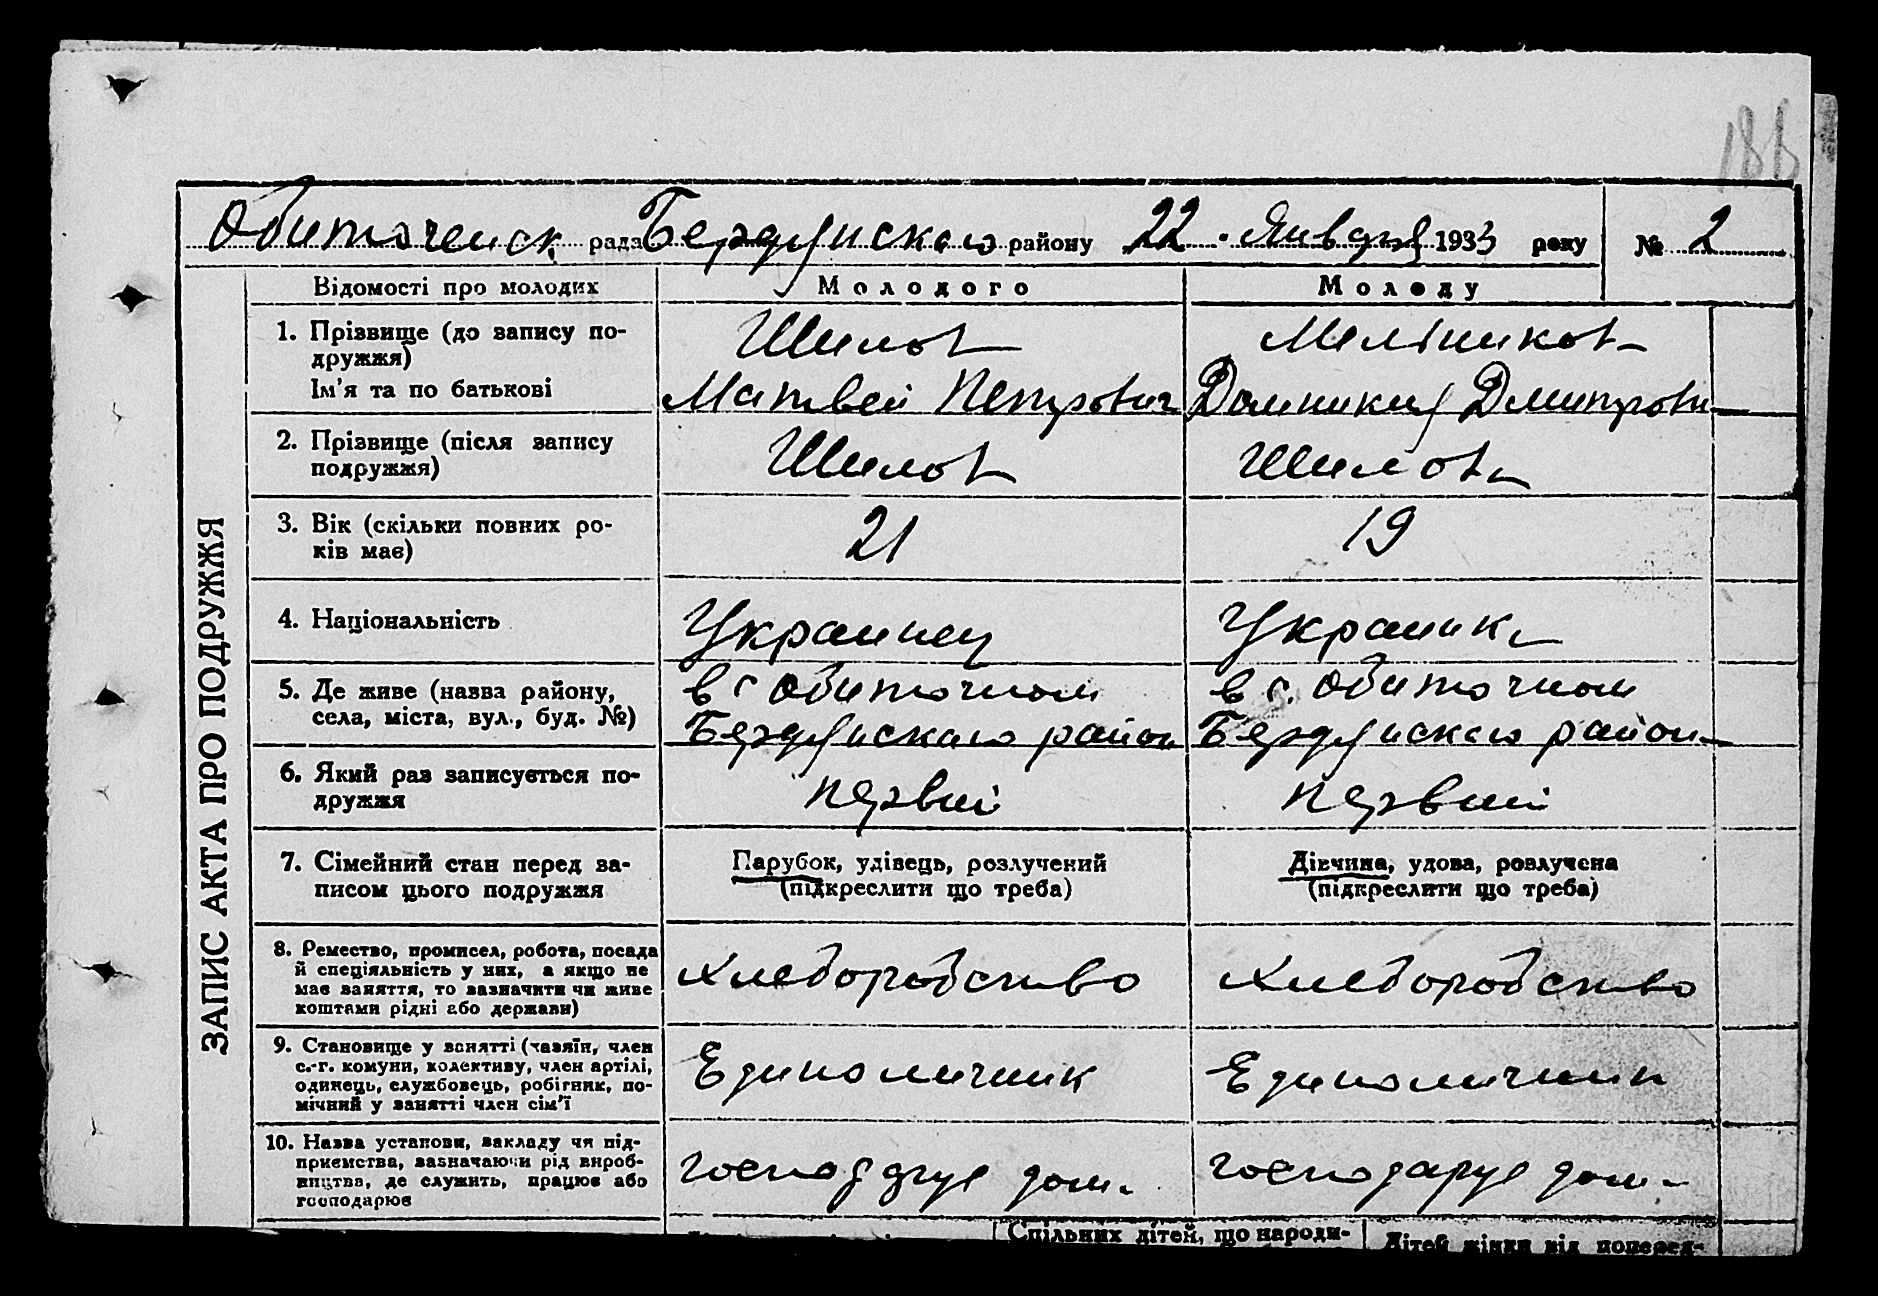 186
Обиточенск рада Бердянского району 22 Января 1933 року № 2
ЗАПИС АКТА ПРО ПОДРУЖЖЯ
Відомості про молодих Молодого Молоду
1. Прізвище (до запису по-
дружжя) Шилов Мельникова
Ім'я та по батькові Матвей Петрович Домникия Дмитровн
2. Прізвище (після запису
подружжя) Шилов Шилова
3. Вік (скільки повних ро-
ків має) 21 19
4. Національність Украинец Украинка
5. Де живе (назва району, в с Обиточном в с. Обиточном
села, міста, вул., буд. №) Бердянского район Бердянского район
6. Який раз записується по-
дружжя первий первий
7. Сімейний стан перед за- Парубок, удівець, розлучений Дівчина, удова, розлучена
писом цього подружжя (підкреслити що треба) (підкреслити що треба)
8. Ремество, промисел, робота, посада
й спеціяльність у них, а якщо не
має заняття, то зазначити чи живе Хлеборобство Хлеборобство
коштами рідні або держави)
9. Становище у занятті (хазяїн, член
с.-г. комуни, колективу, член артілі, Единоличник Единоличник
одинець, службовець, робітник, по-
мічний у занятті член сім'ї
10. Назва установи, закладу чи під-
приємства, зазначаючи рід вироб- господарує дом. господарує дом.
ництва, де служить, працює або
господарює
Спільних дітей, що народи- Дітей жінки від поперед-